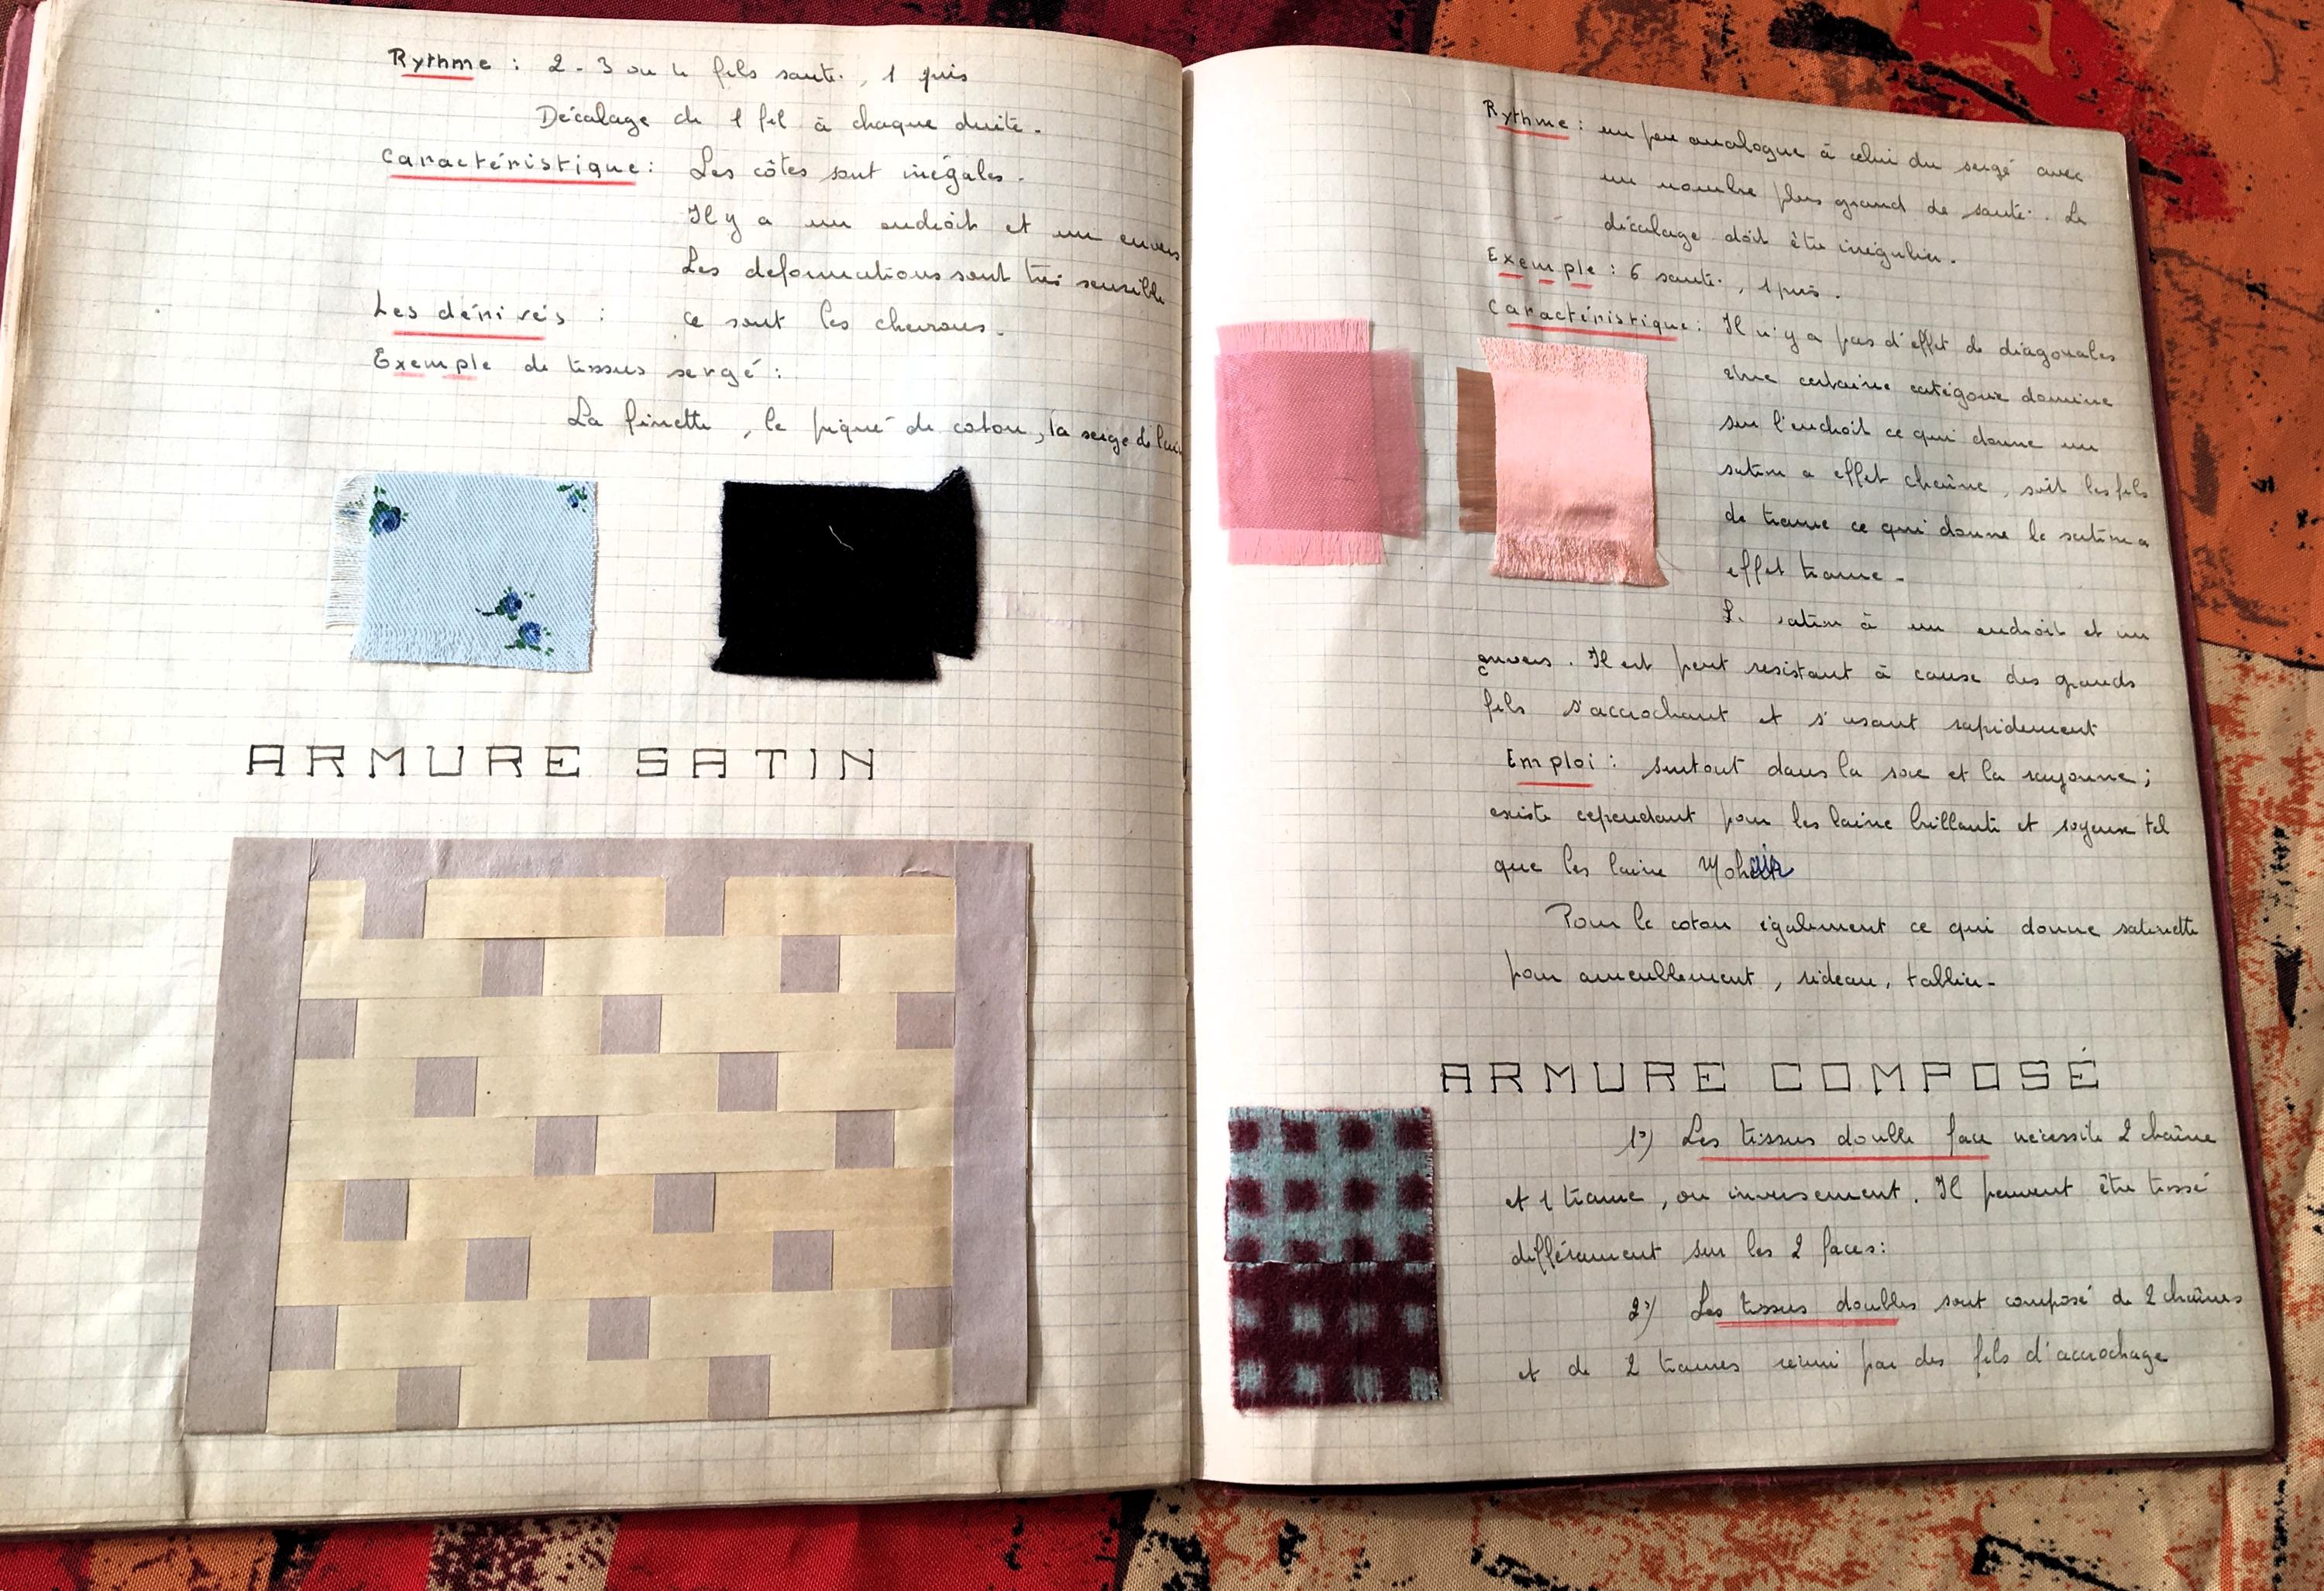 Rythme : 2 - 3 ou 4 fils sauté. , 1 pris
Décalage de 1 fil à chaque duite.
Caractéristique : Les côtes sont inégales.
Il y a un endroit et un envers
Les deformations sont très sensible
Les dérivés : ce sont les chevrons.
Exemple de tissus sergé :
La finette , le piqué de coton , la serge de laine
ARMURE SATIN
Rythme : un peu analogue à celui du sergé avec
un nombre plus grand de sauté. Le
décalage doit être irrégulier.
Exemple : 6 sauté. , 1 pris.
Caractéristique : Il n'y a pas d'effet de diagonales
Une certaine catégorie domine
sur l'endroit ce qui donne un
satin a effet chaîne, soit les fils
de trame ce qui donne le satin a
effet trame.
Le satin à un endroit et un
envers. Il est peut resistant à cause des grands
fils s'accrochant et s'usant rapidement
Emploi : surtout dans la soie et la rayonne ;
existe cependant pour les laine brillante et soyeuse tel
que les laine Mohair
Pour le coton également ce qui donne satinette
pour ameublement, rideau, tablier.
ARMURE COMPOSÉ
1°) Les tissus double face nécessite 2 chaîne
et 1 trame, ou inversement. Il peuvent être tissé
différament sur les 2 faces :
2°) Les tissus doubles sont composé de 2 chaînes
et de 2 trames réuni par des fils d'accrochage